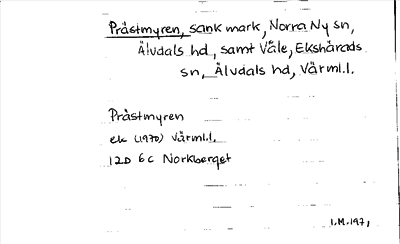 Prästmyren, sank mark, Norra Ny sn,
Älvdals hd, samt Våle, Ekshärads
sn, Älvdals hd, Värml.l.
Prästmyren
ek (1970) Värml.l.
12D 6c Norkberget
I.M. 1971